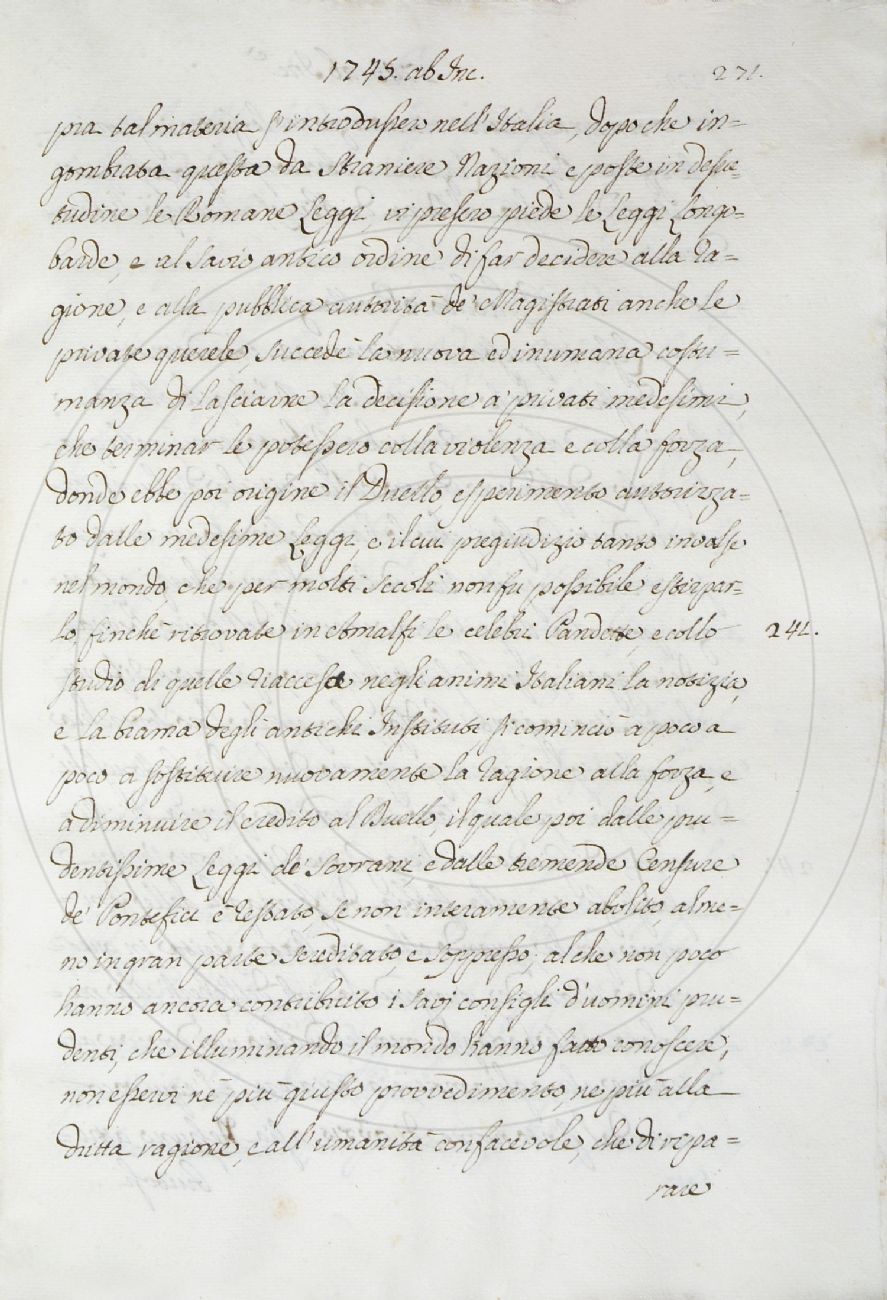 1745. ab Inc.
271.
pra tal materia s'introdussero nell'Italia, dopo che in=
gombrata questa da straniere Nazioni e poste in desue=
tudine le Romane Leggi, vi presero piede le Leggi Longo=
barde, e al savio antico ordine di far decidere alla ra=
gione, e alla pubblica autorità de' Magistrati anche le
private querele, succedè la nuova ed inumana costu=
manza di lasciarne la decisione a' privati medesimi,
che terminar le potessero colla violenza e colla forza,
donde ebbe poi origine il Duello, esperimento autorizza=
to dalle medesime Leggi, e il cui pregiudizio tanto invalse
nel mondo, che per molti secoli non fu possibile estirpar=
lo, finchè ritrovate in Amalfi le celebri Pandette, e collo
241.
studio di quelle riaccesa negli animi Italiani la notizia,
e la brama degli antichi Instituti, si cominciò a poco a
poco a sostituire nuovamente la ragione alla forza, e
a diminuire il credito al Duello, il quale poi dalle pru=
dentissime Leggi de' Sovrani, e dalle tremende Censure
de' Pontefici è restato, se non interamente abolito, alme=
no in gran parte screditato, e soppresso; al che non poco
hanno ancora contribuito i savj consigli d'uomini pru=
denti, che illuminando il mondo hanno fatto conoscere,
non esservi nè più giusto provvedimento, nè più alla
dritta ragione, e all'umanità confacevole, che di ripa=
rare